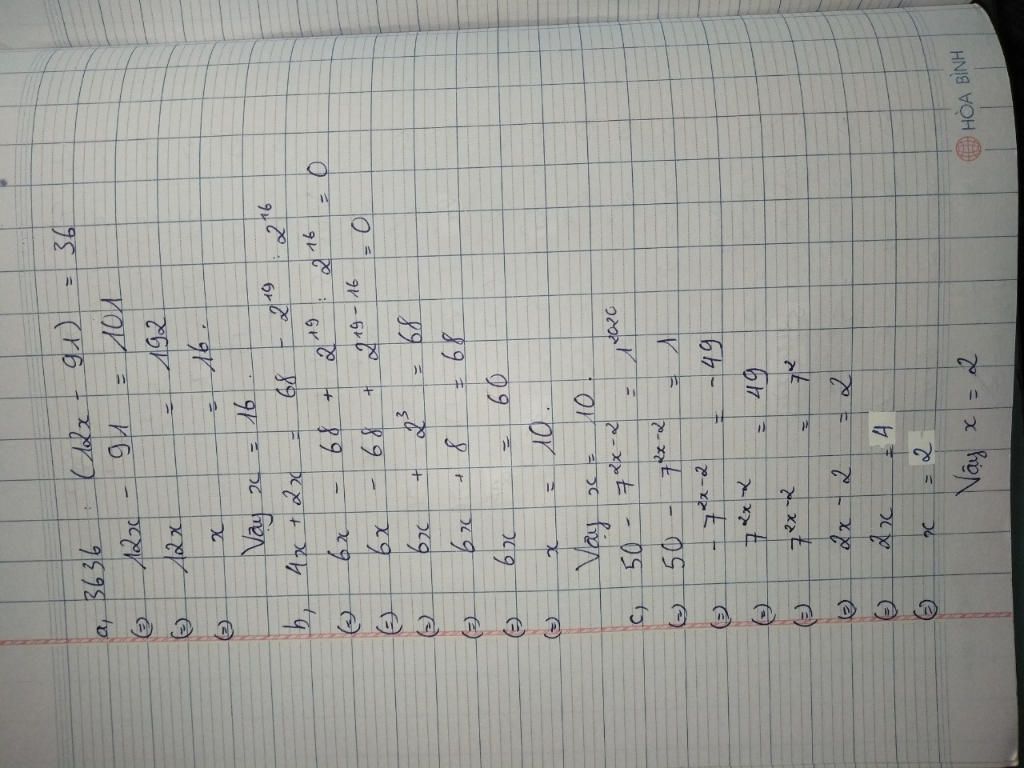 a, 3636 : (12x - 91) = 36
(=) 12x - 91 = 101
(=) 12x = 192
(=) x = 16.
Vậy x = 16.
b, 4x + 2x = 68 - 2^19 : 2^16
(=) 6x - 68 + 2^19 : 2^16 = 0
(=) 6x - 68 + 2^19-16 = 0
(=) 6x + 2^3 = 68
(=) 6x + 8 = 68
(=) 6x = 60
(=) x = 10.
Vậy x = 10.
c, 50 - 7^2x-2 = 1
(=) 50 - 7^2x-2 = 1
(=) - 7^2x-2 = - 49
(=) 7^2x-2 = 49
(=) 7^2x-2 = 7^2
(=) 2x - 2 = 2
(=) 2x = 4
(=) x = 2
Vậy x = 2
HÒA BÌNH